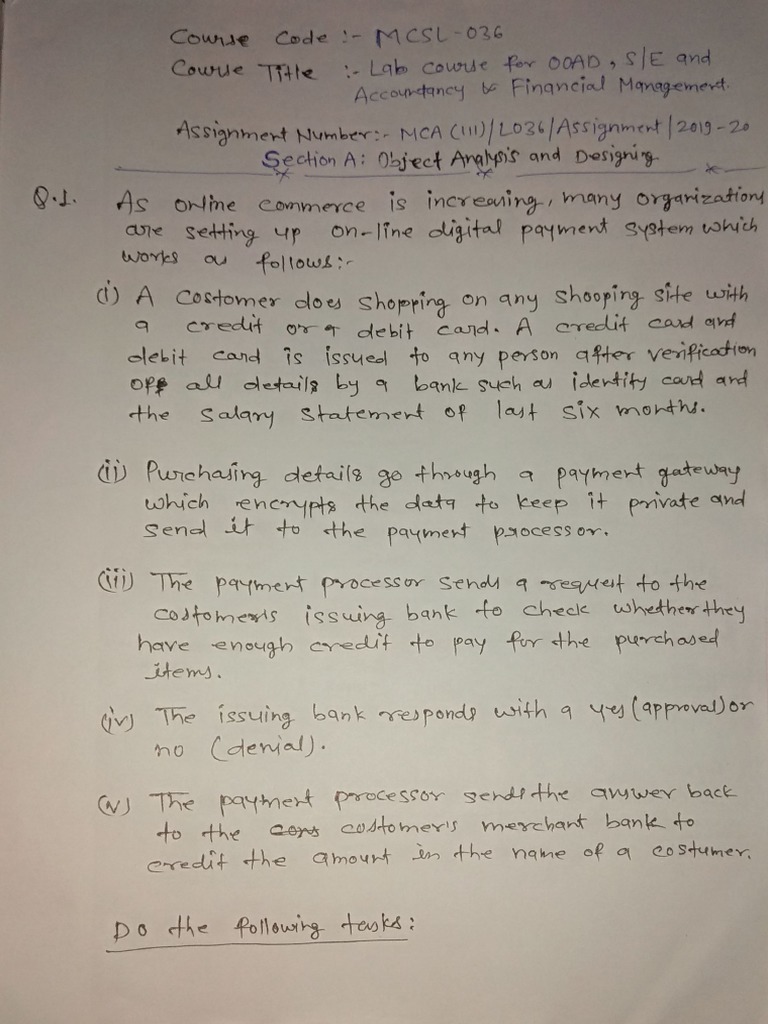 Course Code :- MCSL-036
Course Title :- Lab course for OOAD, S/E and
Accountancy & Financial Management.
Assignment Number:- MCA (III)/L036/Assignment/2019-20
Section A: Object Analysis and Designing
Q.1. As online commerce is increasing, many organizations
are setting up on-line digital payment system which
works as follows:-
(i) A costomer does shopping on any shooping site with
a credit or a debit card. A credit card and
debit card is issued to any person after verification
off all details by a bank such as identity card and
the salary statement of last six months.
(ii) Purchasing details go through a payment gateway
which encrypts the data to keep it private and
send it to the payment processor.
(iii) The payment processor sends a request to the
costomer's issuing bank to check whether they
have enough credit to pay for the purchased
items.
(iv) The issuing bank responds with a yes (approval) or
no (denial).
(v) The payment processor sends the answer back
to the costomer's merchant bank to
credit the amount in the name of a costumer.
Do the following tasks: